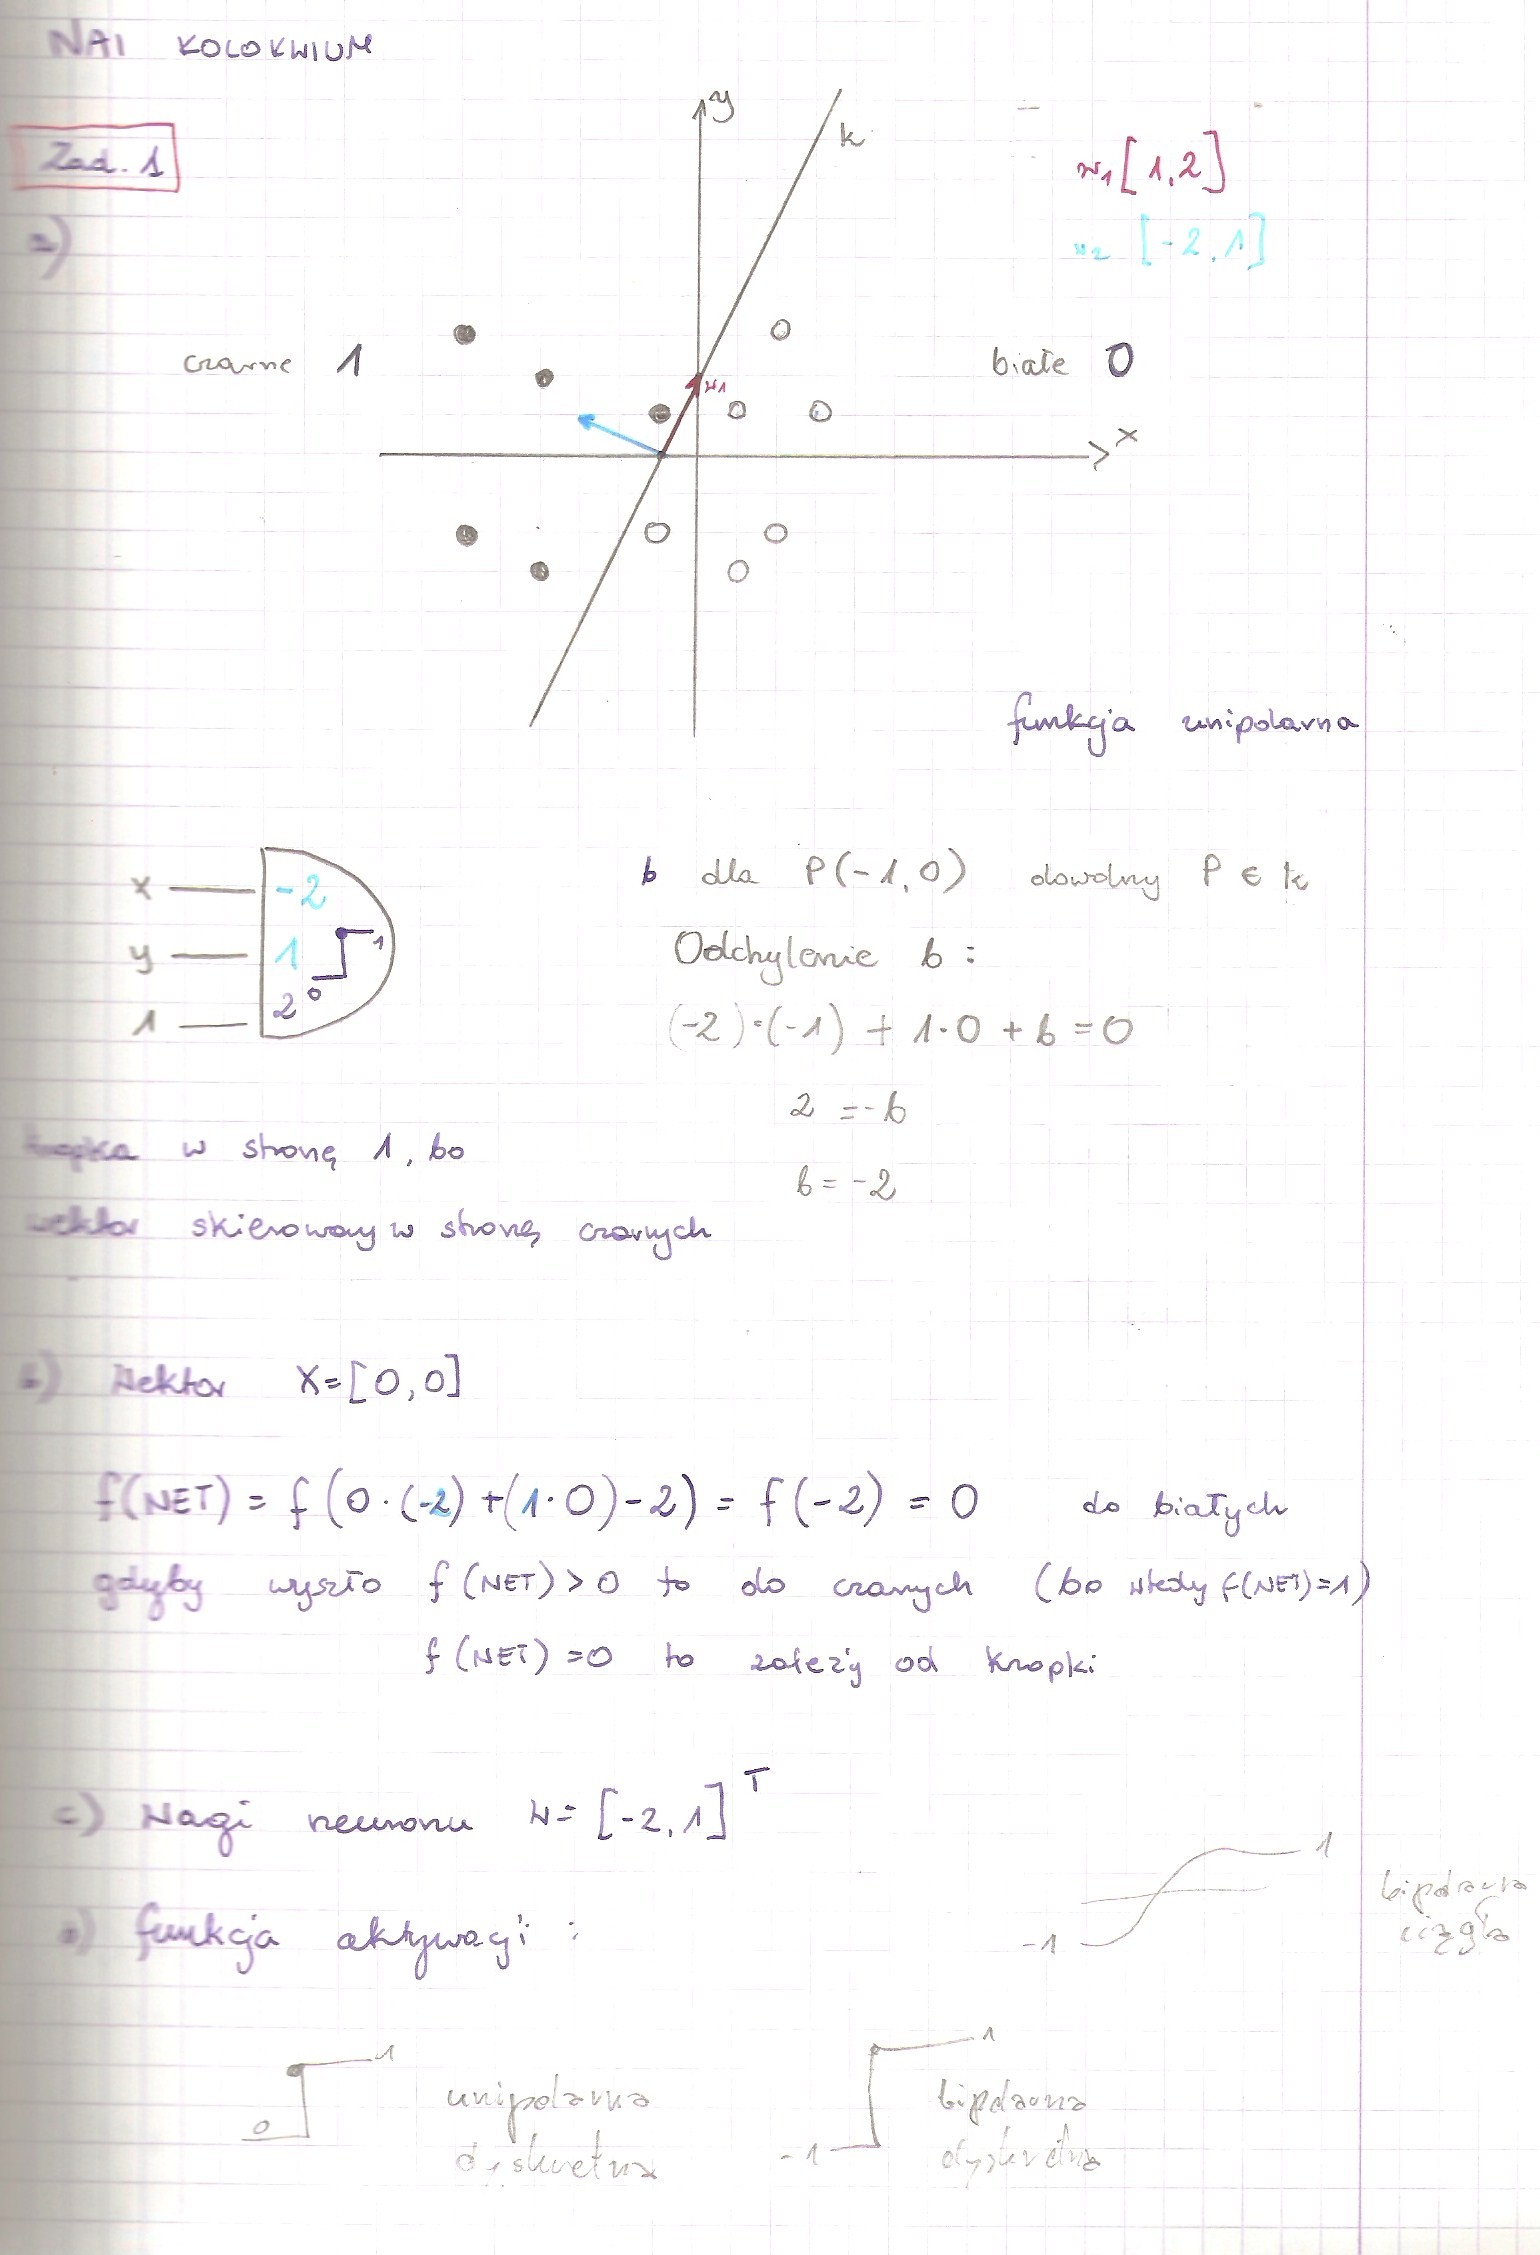 NAI KOLOKWIUM
Zad. 1
a)
y
k
w₁ [1,2]
w₂ [-2,1]
czarne 1
białe 0
w₁
x
funkcja unipolarna
x -2
y 1 1
1 2 0
b dla P(-1,0) dowolny P ∈ k
Odchylenie b:
(-2)·(-1) + 1·0 + b = 0
2 = -b
b = -2
kropka w stronę 1, bo
wektor skierowany w stronę czarnych
b) Wektor X=[0,0]
f(NET) = f(0·(-2)+(1·0)-2) = f(-2) = 0 do białych
gdyby wyszło f(NET)>0 to do czarnych (bo wtedy f(NET)=1)
f(NET)=0 to zależy od kropki
c) Wagi neuronu W= [-2,1]ᵀ
funkcja aktywacji:
1
-1
bipolarna
ciągła
1
0
unipolarna
dyskretna
1
-1
bipolarna
dyskretna